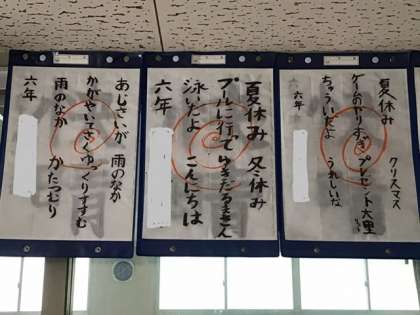 夏休み　クリスマス
ゲームのやりすぎ　プレゼント大
ちゅういだよ　うれしいな
六年
夏休み　冬休み
プールに行て　ゆきだるまさん
泳いだよ　こんにちは
六年
あじさいが　雨のなか
かがやいてさく　ゆっくりすすむ
雨のなか　かたつむり
六年